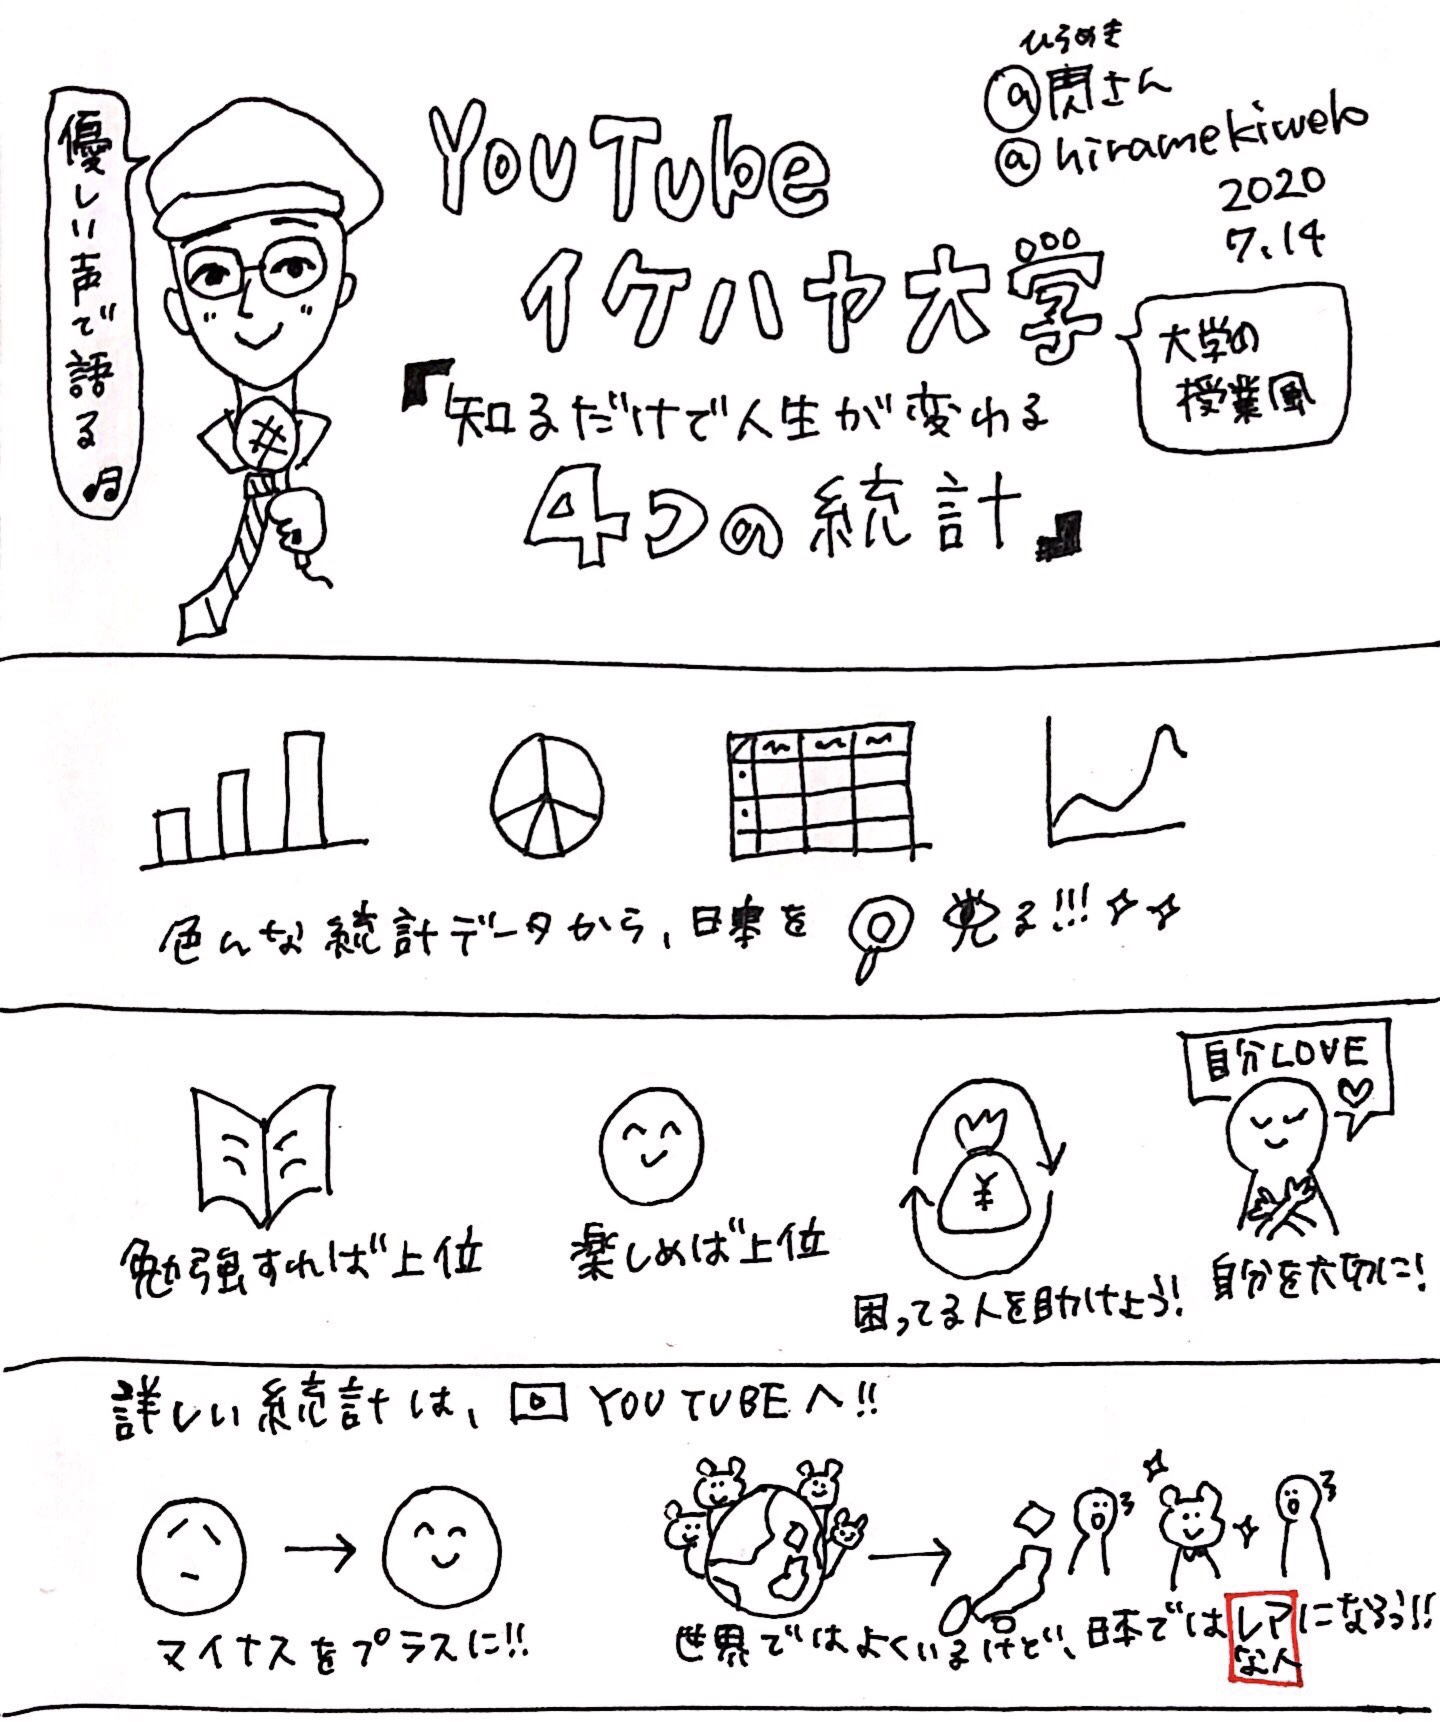 ひらめき
@閃さん
@hiramekiweb
2020
7.14
優しい声で語る♫
YouTube
イケハヤ大学
大学の
授業風
『知るだけで人生が変わる
4つの統計』
色んな統計データから、日本を見る!!!
自分LOVE
¥
勉強すれば上位
楽しめば上位
困ってる人を助けよう!
自分を大切に!
詳しい統計は、YOUTUBEへ!!
マイナスをプラスに!!
世界ではよくいるけど、日本ではレアな人になろう!!